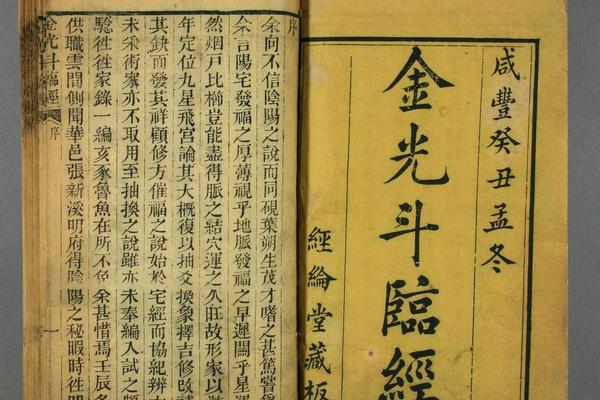 咸豐癸丑孟冬
金光斗臨經
經綸堂藏板
序
余向不信陰陽之說而同硯葉朔生茂才嗜之甚篤嘗
余言陽宅發福之厚薄視乎地脈發福之早遲關乎星運
然烟戸比櫛豈能盡得脈之結穴運之久旺故形家以
年定位九星飛宮論其大概復以抽爻換象擇吉修改補
其缺而發其祥顧修方催福之說始於宅經而協紀辨方
未釆術家亦不取用至抽換之說雖亦未奉編入試之頗
驗徃徃家錄一編亥豕魯魚在所不免余甚惜焉壬辰冬
供職雲間側聞華邑張新溪明府得陰陽之秘暇時徃
金光斗臨經
序
一